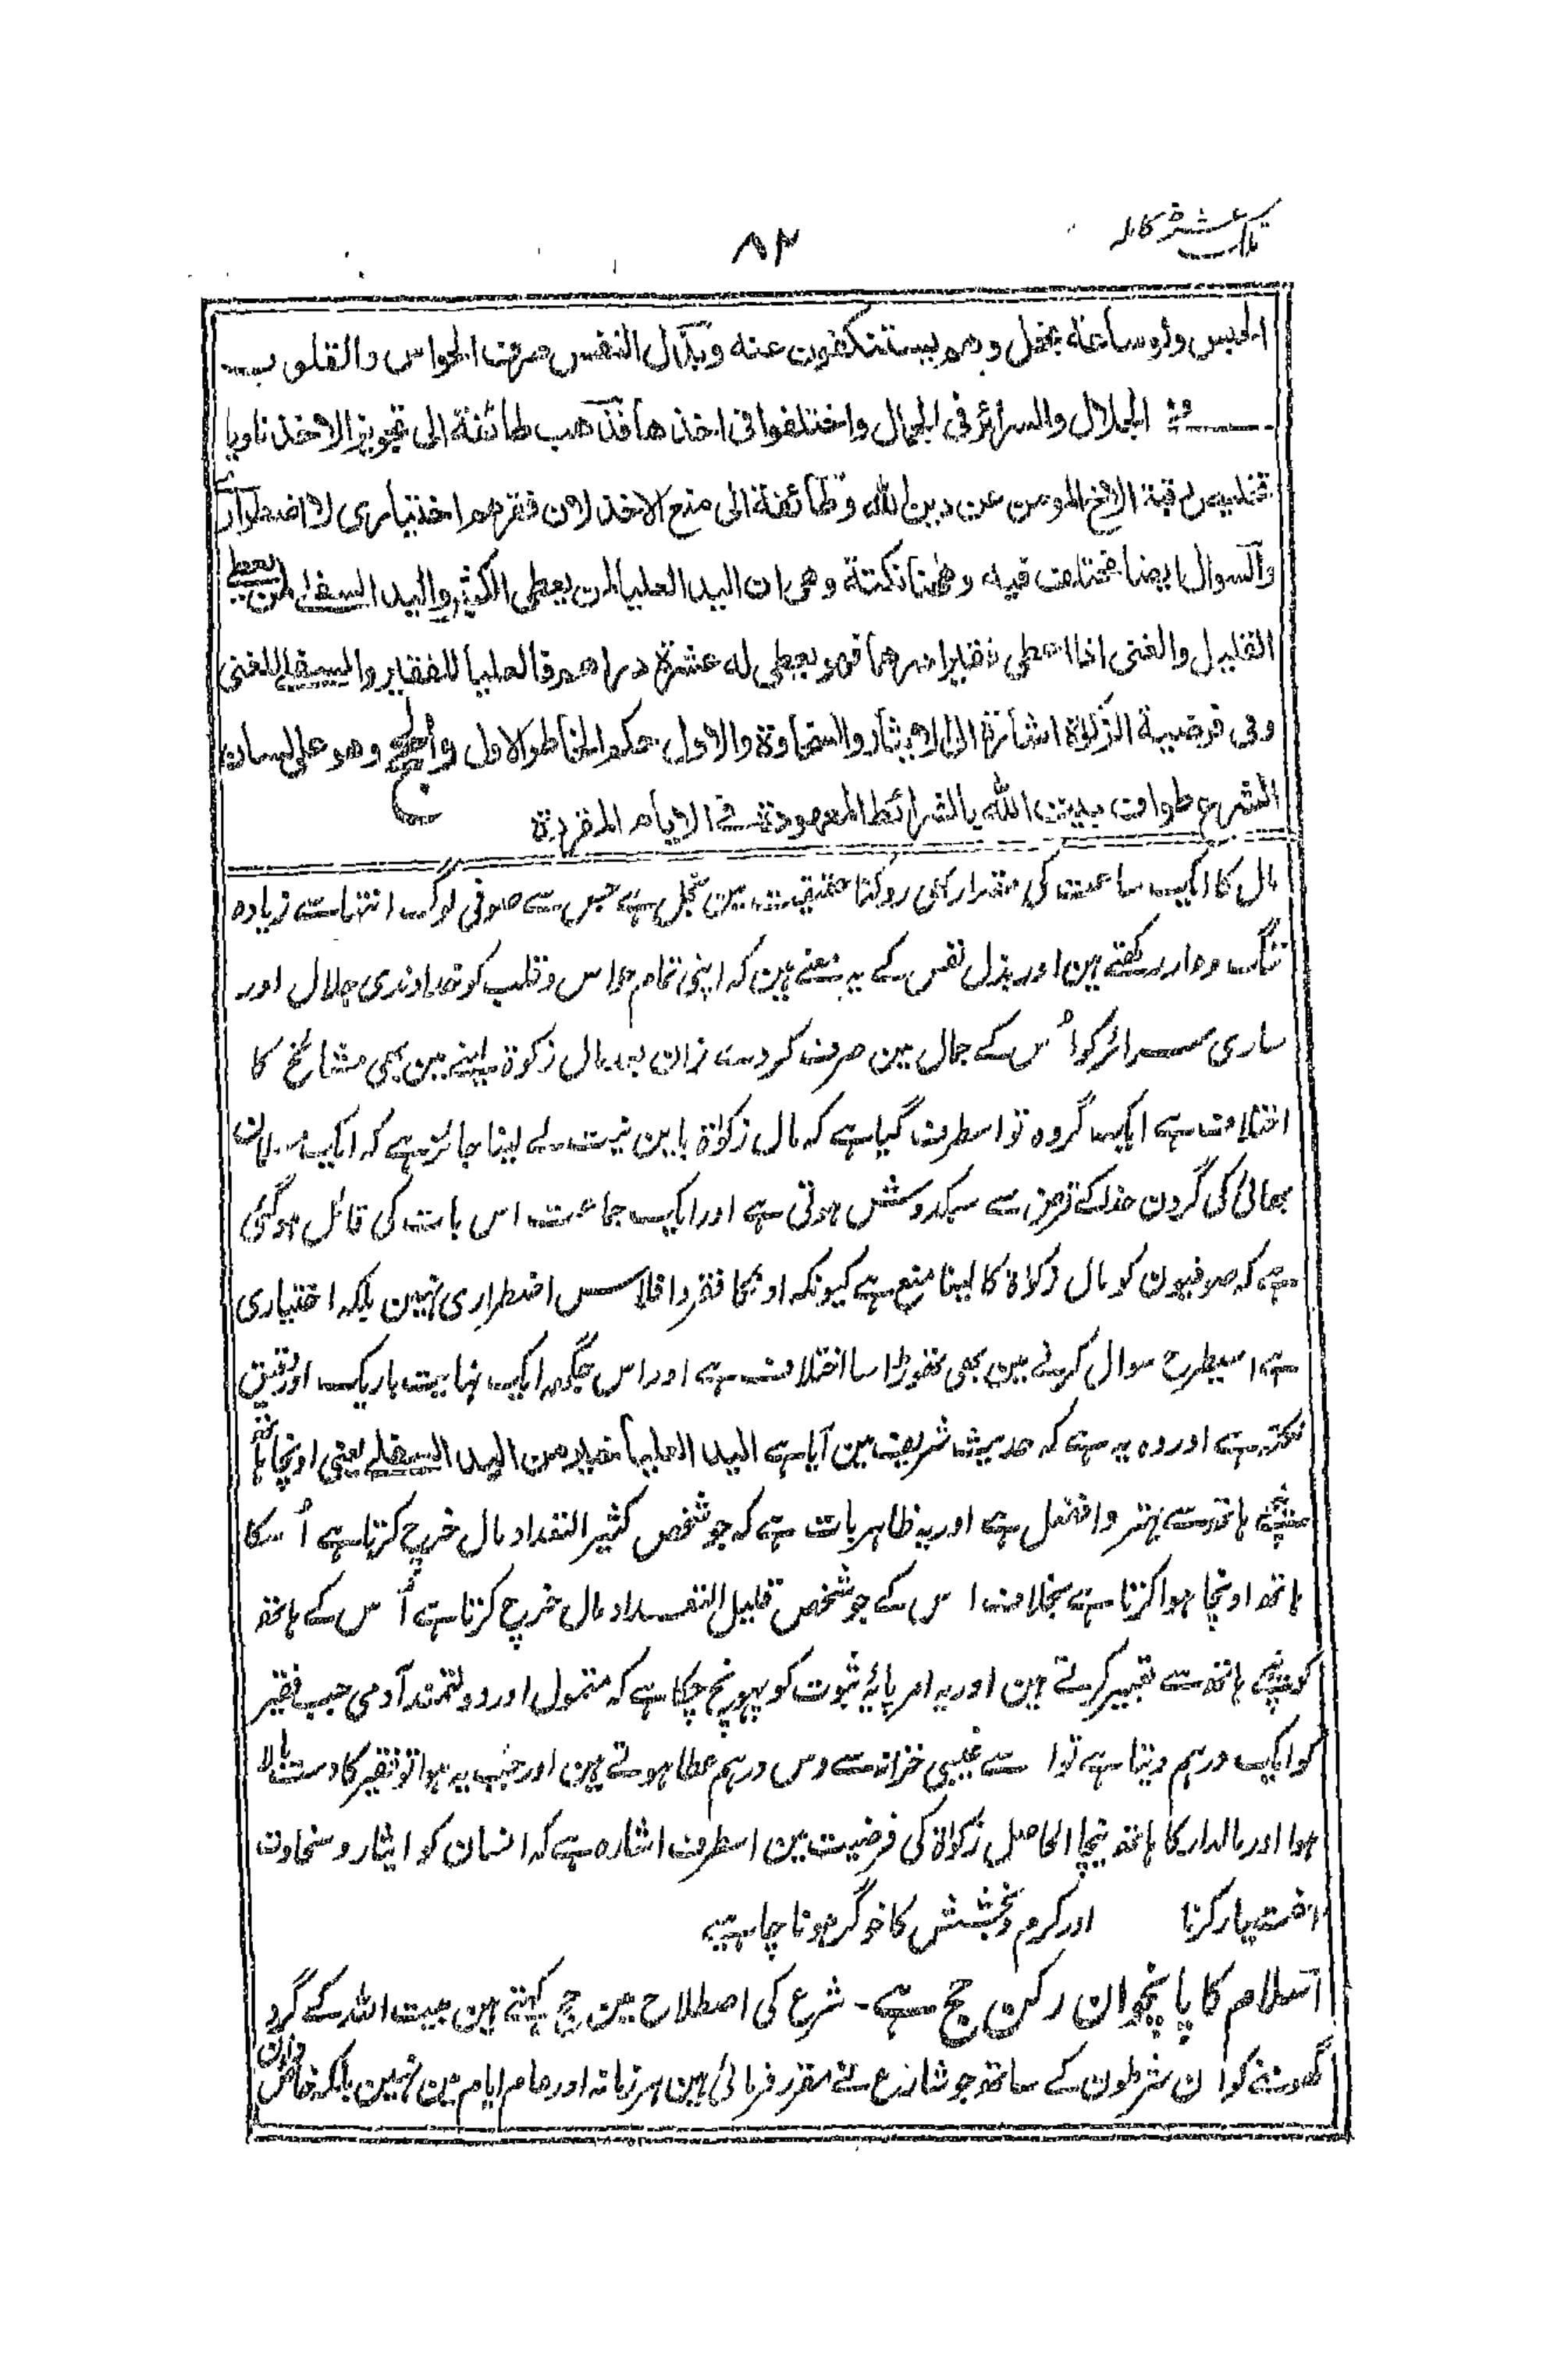 تلک عشرة کاملہ
۸۲
الحبس ولو ساعة بخل وهم يستنكفون عنه وبذل النفس صرف الحواس والقلوب
فى الجلال والسرائر فى الجمال واختلفوا فى اخذها فذهب طائفة الى تجويز الاخذ ناويا
تخليص رقبة الاخ المومن عن دين الله وطائفة الى منع الاخذ لان فقرهم اختيارى لا اضطرارى
والسوال ايضا مختلف فيه وههنا نكتة وهى ان اليد العليا لمن يعطى الكثير واليد السفلے لمن يعطى
القليل والغنى اذا اعطى فقيرا درهما فهو يعطى له عشرة دراهم فالعليا للفقير والسفلے للغنى
وفى فرضية الزكوٰة اشارة الى الايثار والسخاوة والاول حكم الخاطر الاول والحج وهو على لسان
الشرع طواف بيت الله بالشرائط المعهودة فے الايام المقررة
مال کا ایک ساعت کی مقدار بھی روکنا حقیقت مین بخل ہے جس سے صوفی لوگ انتہا سے زیادہ
ننگ و عار رکھتے ہین اور بذل نفس کے یہ معنے ہین کہ اپنی تمام حواس و قلب کو خداوندی جلال اور
ساری سرائر کو اُس کے جمال مین صرف کردے زان بعد مال زکوة لینے مین بھی مشائخ کا
اختلاف ہے ایک گروہ تو اسطرف گیا ہے کہ مال زکوٰة باین نیت لے لینا جائز ہے کہ ایک مسلمان
بھائی کی گردن خدا کے قرض سے سبکدوش ہوتی ہے اور ایک جماعت اس بات کی قائل ہوگئی
ہے کہ صوفیون کو مال زکوٰة کا لینا منع ہے کیونکہ اونکا فقر و افلاس اضطراری نہین بلکہ اختیاری
ہے اسیطرح سوال کرنے مین بھی تھوڑا سا اختلاف ہے اور اس جگہ ایک نہایت باریک اور دقیق
نکتہ ہے اور وہ یہ ہے کہ حدیث شریف مین آیا ہے اليد العليا خير من اليد السفلے یعنی اونچا ہاتھ
نیچے ہاتھ سے بہتر و افضل ہے اور یہ ظاہر بات ہے کہ جو شخص کثیر التعداد مال خرچ کرتا ہے اُسکا
ہاتھ اونچا ہوا کرتا ہے بخلاف اس کے جو شخص قلیل التعداد مال خرچ کرتا ہے اُس کے ہاتھ
کو نیچے ہاتھ سے تعبیر کرتے ہین اور یہ امر پایۂ ثبوت کو پہونچ چکا ہے کہ متمول اور دولتمند آدمی جب فقیر
کو ایک درہم دیتا ہے تو اسے غیبی خزانہ سے دس درہم عطا ہوتے ہین اور جب یہ ہوا تو فقیر کا دست بالا
ہوا اور مالدار کا ہاتھ نیچا الحاصل زکوٰة کی فرضیت مین اسطرف اشارہ ہے کہ انسان کو ایثار و سخاوت
اختیار کرنا اور کرم و بخشش کا خوگر ہونا چاہیے
اسلام کا پانچوان رکن حج ہے۔ شرع کی اصطلاح مین حج کہتے ہین بیت اللہ کے گرد
گھومنے کو ان شرطون کے ساتھ جو شارع نے مقرر فرمائی ہین ہر زمانہ اور عام ایام مین نہین بلکہ خاص